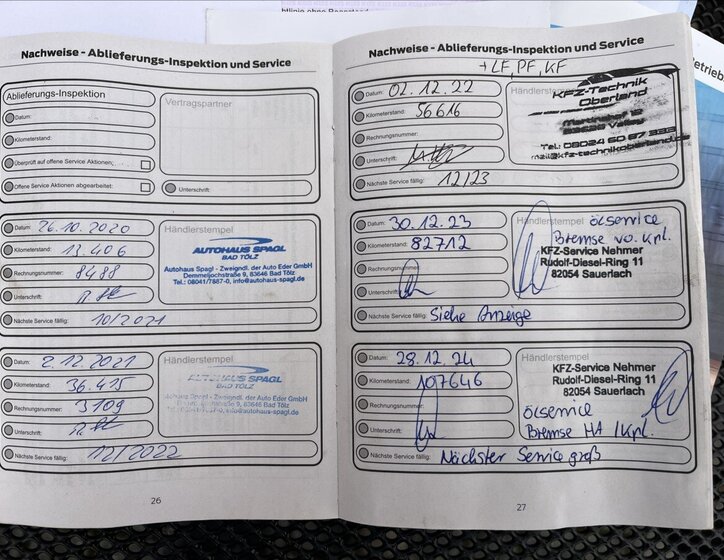 Nachweise - Ablieferungs-Inspektion und Service
Ablieferungs-Inspektion
Vertragspartner
Datum:
Kilometerstand:
Überprüft auf offene Service Aktionen:
Offene Service Aktionen abgearbeitet:
Unterschrift:
Datum: 26.10.2020
Händlerstempel
Kilometerstand: 13.406
AUTOHAUS SPAGL
BAD TÖLZ
Rechnungsnummer: 8488
Autohaus Spagl - Zweigndl. der Auto Eder GmbH
Demmeljochstraße 9, 83646 Bad Tölz
Tel.: 08041/7887-0, info@autohaus-spagl.de
Unterschrift:
Nächste Service fällig: 10/2021
Datum: 2.12.2021
Händlerstempel
Kilometerstand: 36.415
AUTOHAUS SPAGL
BAD TÖLZ
Rechnungsnummer: 3109
Unterschrift:
Nächste Service fällig: 12/2022
26
Nachweise - Ablieferungs-Inspektion und Service
+LF, PF, KF
Datum: 02.12.22
Händlerstempel
KFZ-Technik
Oberland
Kilometerstand: 56616
Rechnungsnummer:
Unterschrift:
Nächste Service fällig: 12/23
Datum: 30.12.23
Händlerstempel ölservice
Bremse vo. Kpl.
Kilometerstand: 82712
KFZ-Service Nehmer
Rudolf-Diesel-Ring 11
82054 Sauerlach
Rechnungsnummer:
Unterschrift:
Nächste Service fällig: Siehe Anzeige
Datum: 28.12.24
Händlerstempel
KFZ-Service Nehmer
Rudolf-Diesel-Ring 11
82054 Sauerlach
Kilometerstand: 107646
Rechnungsnummer:
ölservice
Bremse HA Kpl.
Unterschrift:
Nächste Service fällig: Nächster Service groß
27